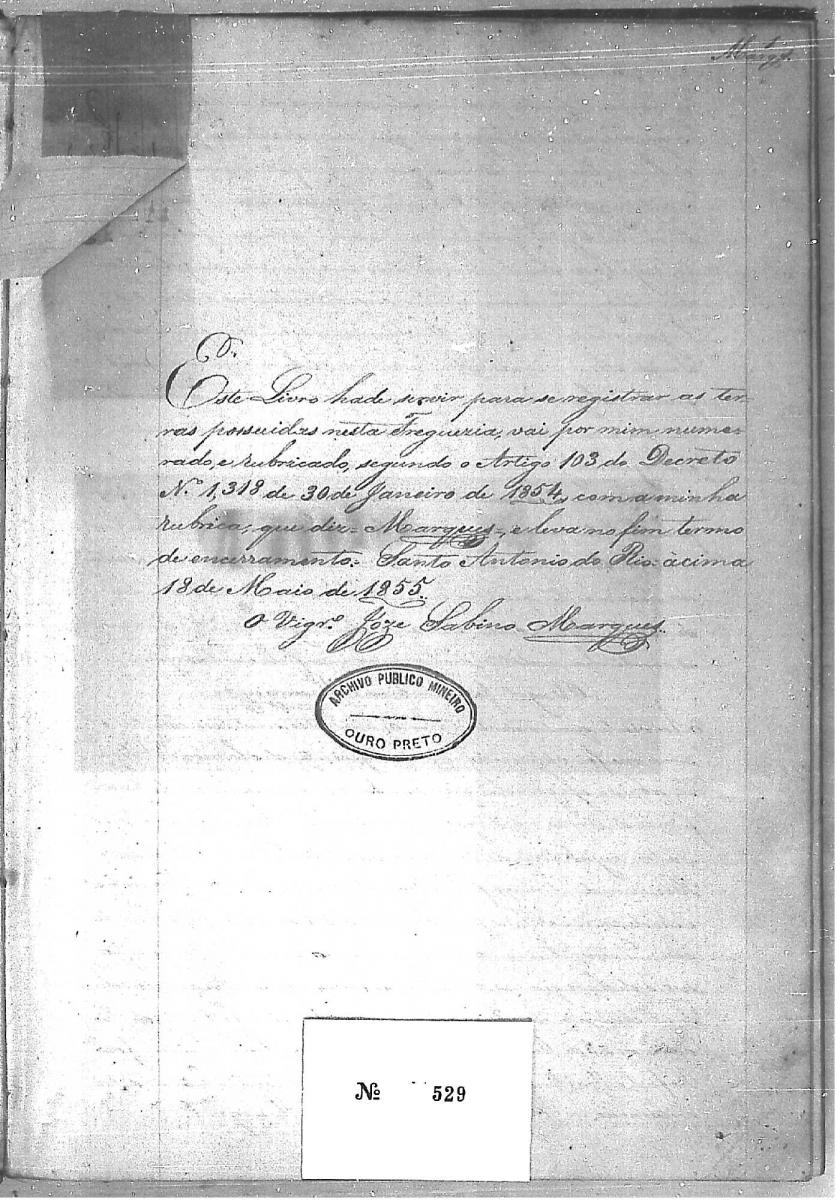 1
Marqs.
Este Livro hade servir para se registrar as ter-
ras possuidas nesta Freguezia, vai por mim nume-
rado, e rubricado, segundo o Artigo 103 do Decreto
Nº 1,318 de 30 de Janeiro de 1854, com a minha
rubrica, que diz = Marques =, e leva no fim termo
de encerramento. Santo Antonio do Rio-àcima
18 de Maio de 1855.
O Vigrº. Joze Sabino Marques.
ARCHIVO PUBLICO MINEIRO
OURO PRETO
Nº 529